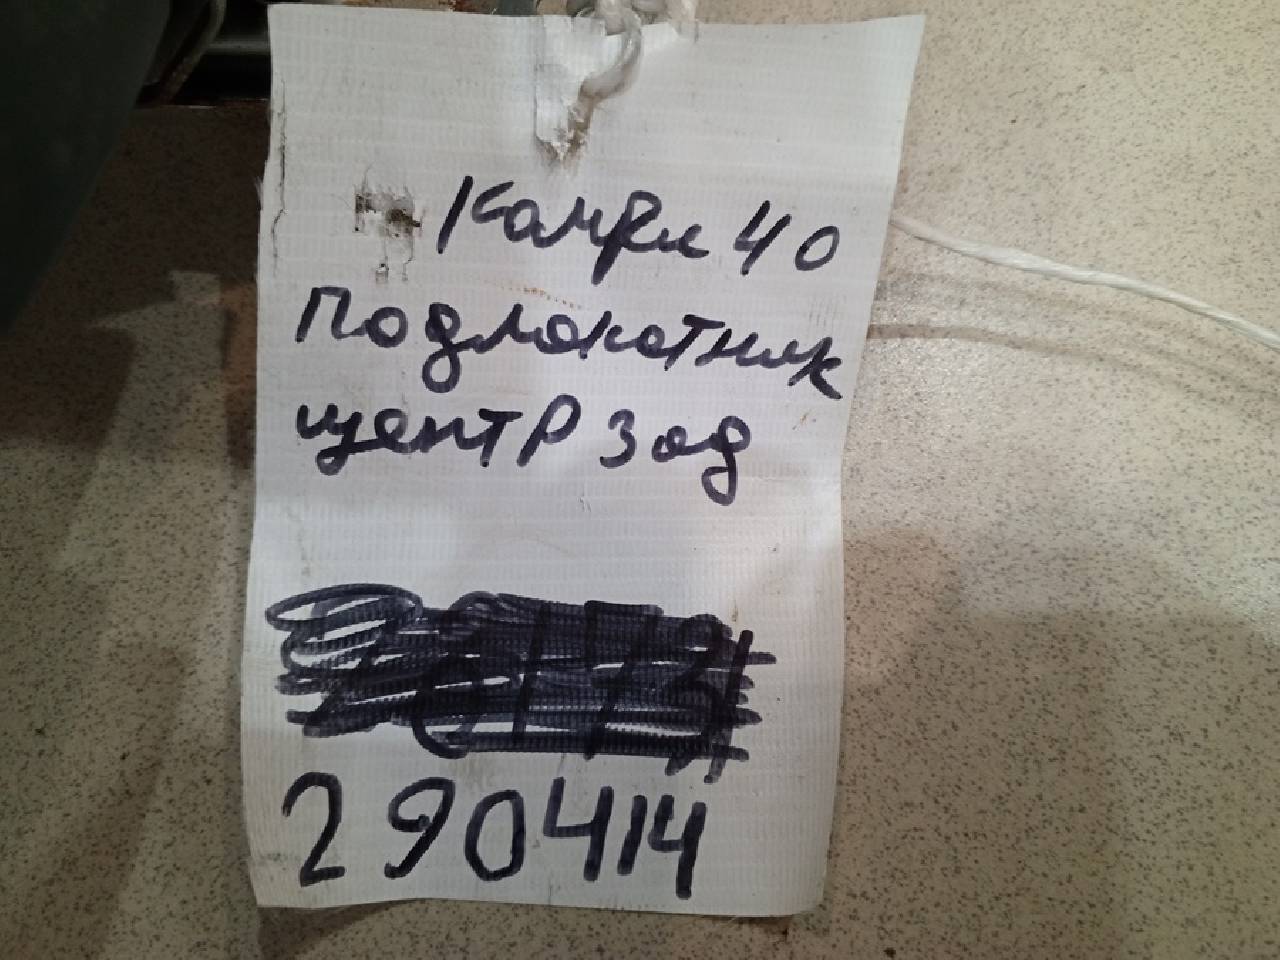 Камри 40
Подлокотник
центр зад
290414